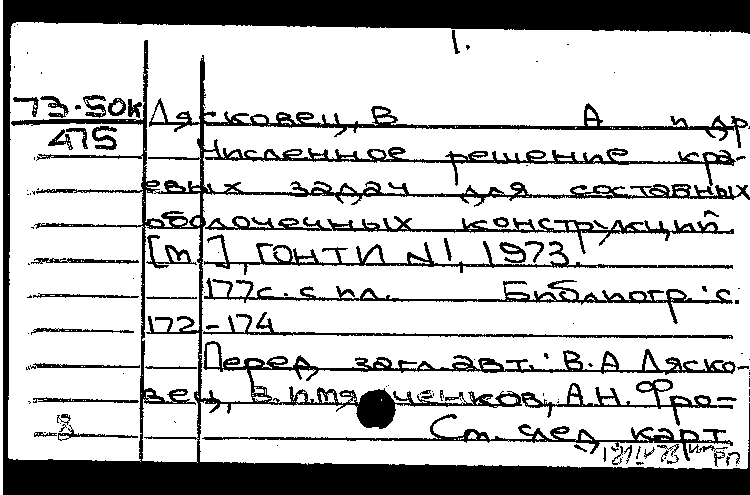 1.
73-50к Лясковец, В А и др
475 Численное решение кра-
евых задач для составных
оболочечных конструкций.
[м.], ГОНТИ N1, 1973.
177с. с ил. Библиогр.: с.
172-174
Перед загл. авт.: В.А Ляско-
вец, В. И. А.Н. Фро-
8 См. след карт